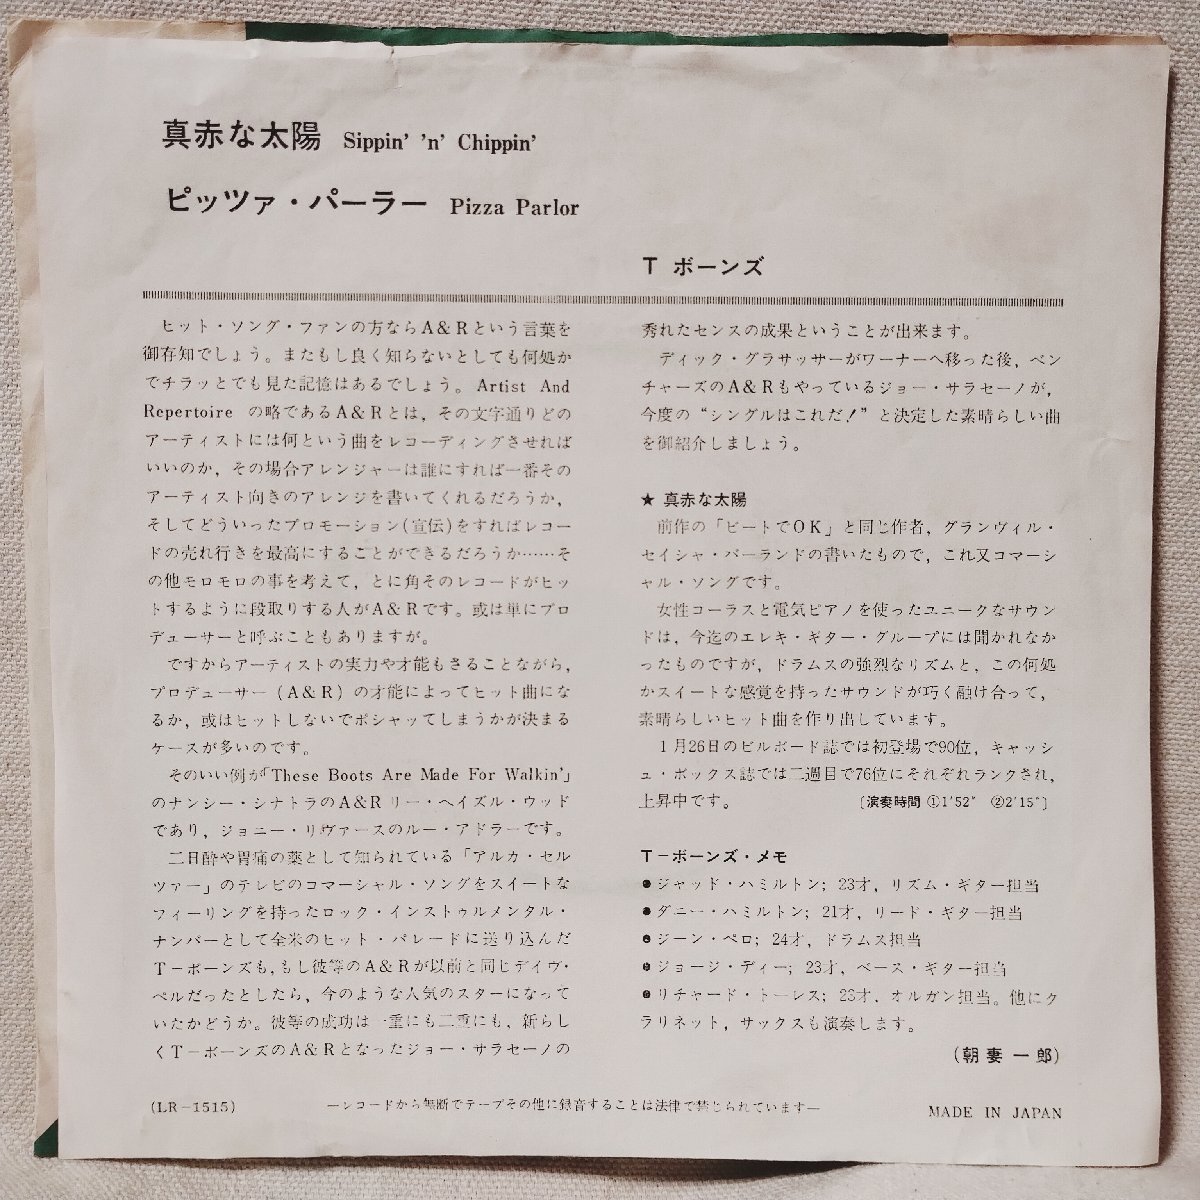 真赤な太陽 Sippin' 'n' Chippin'
ピッツァ・パーラー Pizza Parlor
T ボーンズ
ヒット・ソング・ファンの方ならA＆Rという言葉を
御存知でしょう。またもし良く知らないとしても何処か
でチラッとでも見た記憶はあるでしょう。Artist And
Repertoire の略であるA＆Rとは，その文字通りどの
アーティストには何という曲をレコーディングさせれば
いいのか，その場合アレンジャーは誰にすれば一番その
アーティスト向きのアレンジを書いてくれるだろうか，
そしてどういったプロモーション(宣伝)をすればレコー
ドの売れ行きを最高にすることができるだろうか……そ
の他モロモロの事を考えて，とに角そのレコードがヒッ
トするように段取りする人がA＆Rです。或は単にプロ
デューサーと呼ぶこともありますが。
ですからアーティストの実力や才能もさることながら，
プロデューサー（A＆R）の才能によってヒット曲にな
るか，或はヒットしないでポシャッてしまうかが決まる
ケースが多いのです。
そのいい例が「These Boots Are Made For Walkin'」
のナンシー・シナトラのA＆R リー・ヘイズル・ウッド
であり，ジョニー・リヴァースのルー・アドラーです。
二日酔や胃痛の薬として知られている「アルカ・セル
ツァー」のテレビのコマーシャル・ソングをスイートな
フィーリングを持ったロック・インストゥルメンタル・
ナンバーとして全米のヒット・パレードに送り込んだ
T－ボーンズも，もし彼等のA＆Rが以前と同じデイヴ・
ペルだったとしたら，今のような人気のスターになって
いたかどうか。彼等の成功は一重にも二重にも，新らし
くT－ボーンズのA＆Rとなったジョー・サラセーノの
秀れたセンスの成果ということが出来ます。
ディック・グラサッサーがワーナーへ移った後，ベン
チャーズのA＆Rもやっているジョー・サラセーノが，
今度の“シングルはこれだ！”と決定した素晴らしい曲
を御紹介しましょう。
★ 真赤な太陽
前作の「ビートでOK」と同じ作者，グランヴィル・
セイシャ・バーランドの書いたもので，これ又コマーシ
ャル・ソングです。
女性コーラスと電気ピアノを使ったユニークなサウン
ドは，今迄のエレキ・ギター・グループには聞かれなか
ったものですが，ドラムスの強烈なリズムと，この何処
かスイートな感覚を持ったサウンドが巧く融け合って，
素晴らしいヒット曲を作り出しています。
1月26日のビルボード誌では初登場で90位，キャッシ
ュ・ボックス誌では二週目で76位にそれぞれランクされ，
上昇中です。 〔演奏時間 ①1'52" ②2'15"〕
T－ボーンズ・メモ
●ジャッド・ハミルトン；23才，リズム・ギター担当
●ダニー・ハミルトン；21才，リード・ギター担当
●ジーン・ペロ；24才，ドラムス担当
●ジョージ・ディー；23才，ベース・ギター担当
●リチャード・トーレス；23才，オルガン担当。他にク
ラリネット，サックスも演奏します。
(朝妻一郎)
(LR－1515)
―レコードから無断でテープその他に録音することは法律で禁じられています―
MADE IN JAPAN